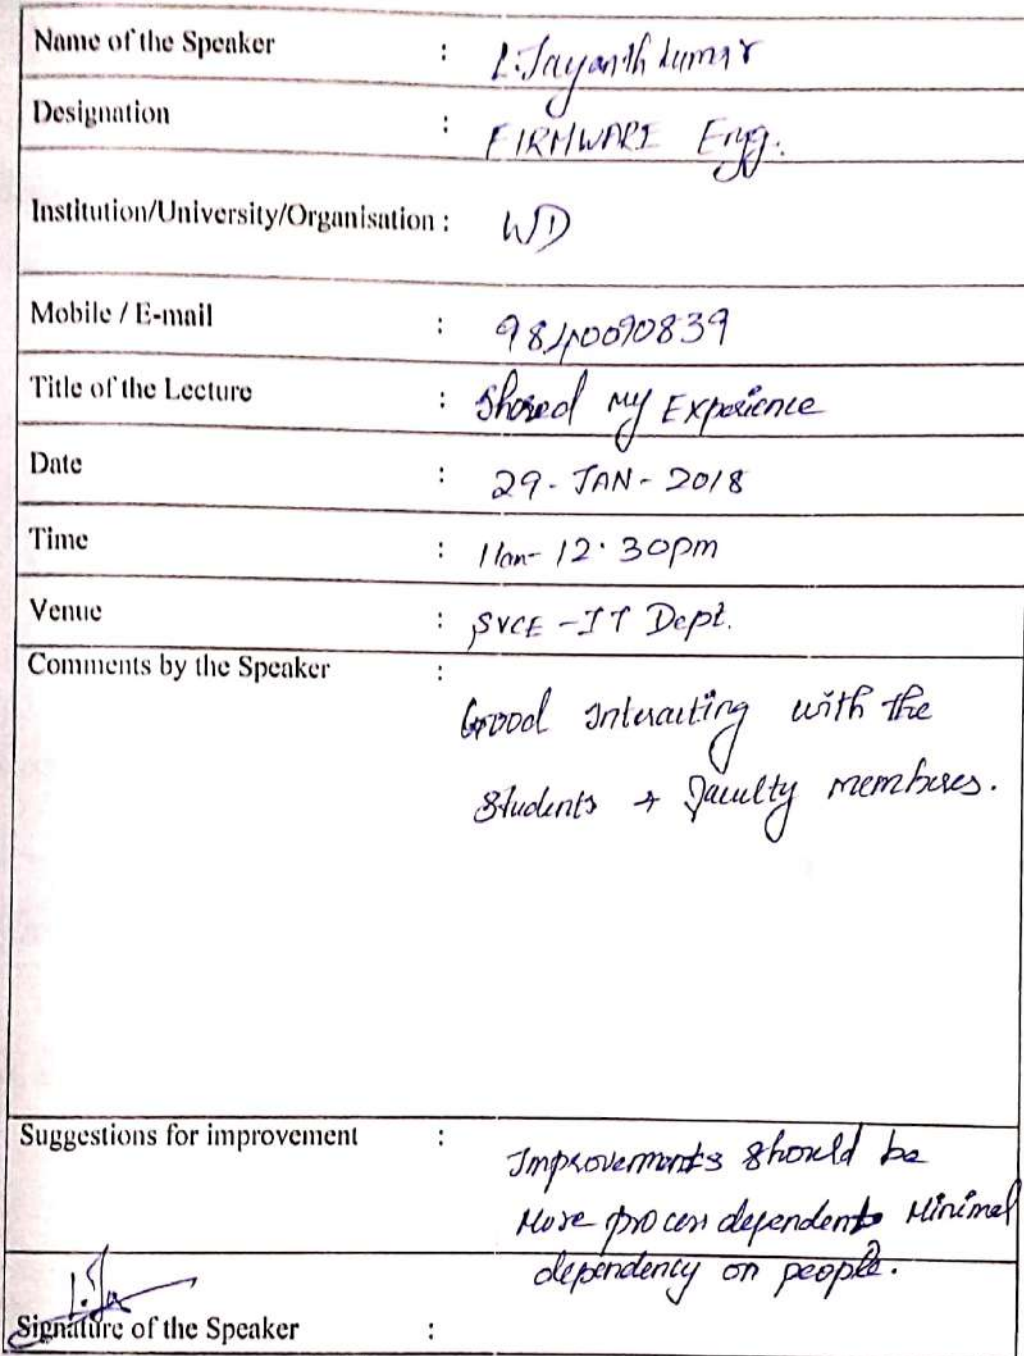 Name of the Speaker : L. Jayanth kumar
Designation : FIRMWARE Engg.
Institution/University/Organisation : WD
Mobile / E-mail : 9840090839
Title of the Lecture : Shared my Experience
Date : 29-JAN-2018
Time : 11am-12.30pm
Venue : SVCE-IT Dept.
Comments by the Speaker :
Good Interacting with the
Students + faculty members.
Suggestions for improvement :
Improvements should be
More process dependent Minimal
dependency on people.
Signature of the Speaker :